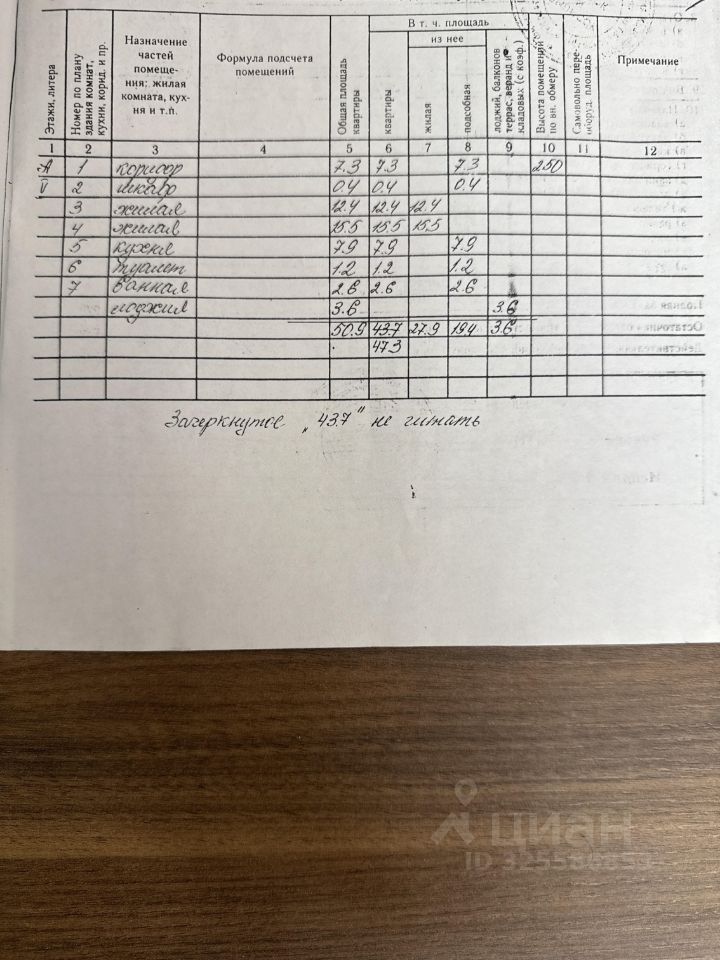 В т. ч. площадь
из нее
Этажи, литера
Номер по плану здания комнат, кухни, корид. и пр.
Назначение частей помеще-
ния: жилая комната, кух-
ня и т.п.
Формула подсчета помещений
Общая площадь квартиры
квартиры
жилая
подсобная
лоджий, балконов террас, веранд и кладовых (с коэф.)
Высота помещений по вн. обмеру
Самовольно пере-
оборуд. площадь
Примечание
1 2 3 4 5 6 7 8 9 10 11 12
А 1 коридор 7.3 7.3 7.3 250
V 2 шкаф 0.4 0.4 0.4
3 жилая 12.4 12.4 12.4
4 жилая 15.5 15.5 15.5
5 кухня 7.9 7.9 7.9
6 туалет 1.2 1.2 1.2
7 ванная 2.6 2.6 2.6
лоджия 3.6 3.6
50.9 43.7 27.9 19.4 3.6
47.3
Зачеркнутое „43.7" не читать
циан